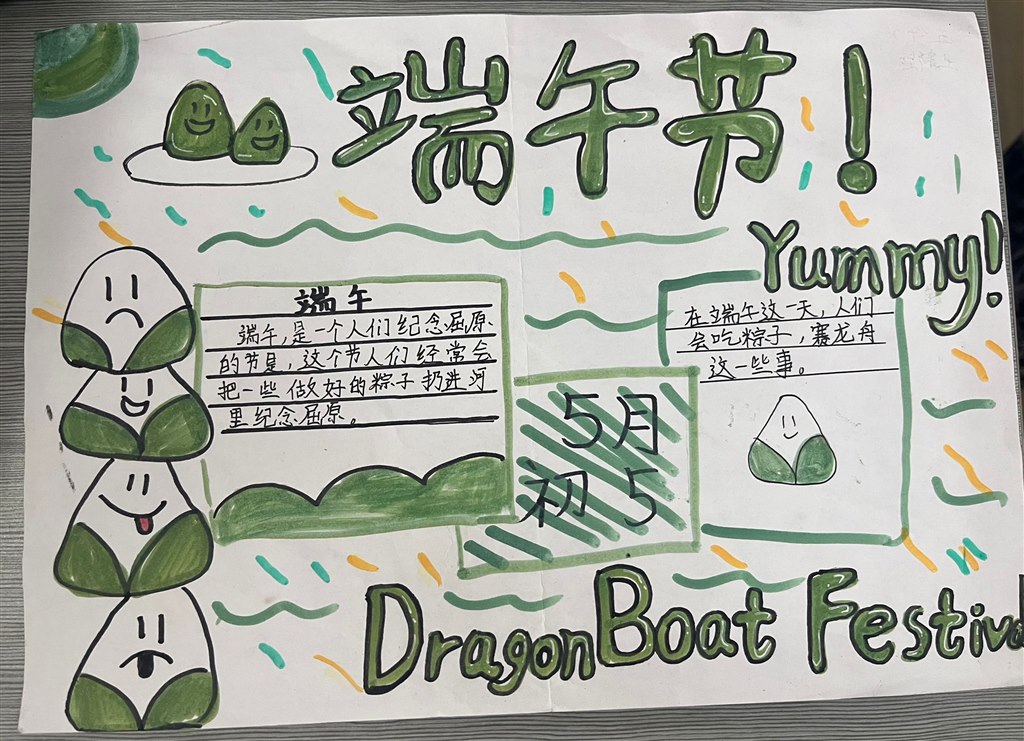 端午节！
Yummy!
端午
端午,是一个人们纪念屈原
的节是，这个节人们经常会
把一些做好的粽子扔进河
里纪念屈原。
在端午这一天，人们
会吃粽子，赛龙舟
这一些事。
5月
初5
Dragon Boat Festival